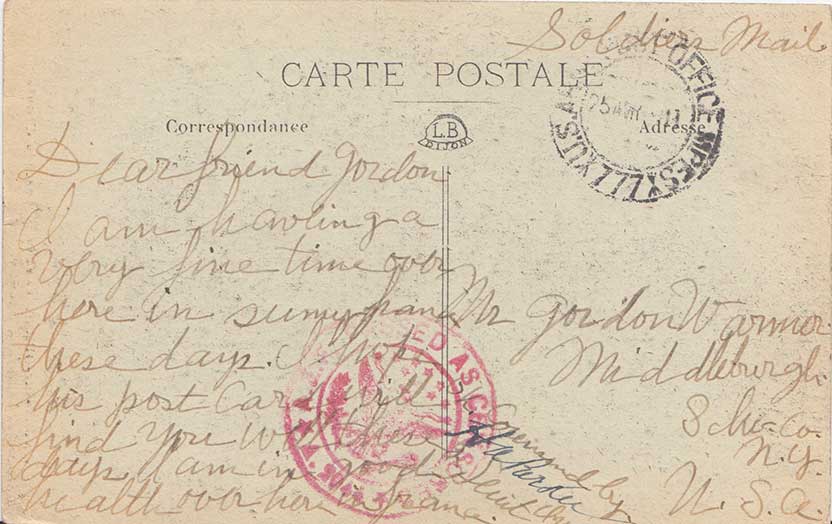 Soldiers Mail
CARTE POSTALE
Correspondance
L.B
DIJON
Adresse
OFFICE
25
Dear friend Gordon
I am having a
very fine time over
here in sunny france
these days. I hope
this post card will
find you well these
days I am in good
health over here in france.
Mr Gordon Warner
Middleburgh
Scho. Co.
N.y.
U. S. a.
Censored by